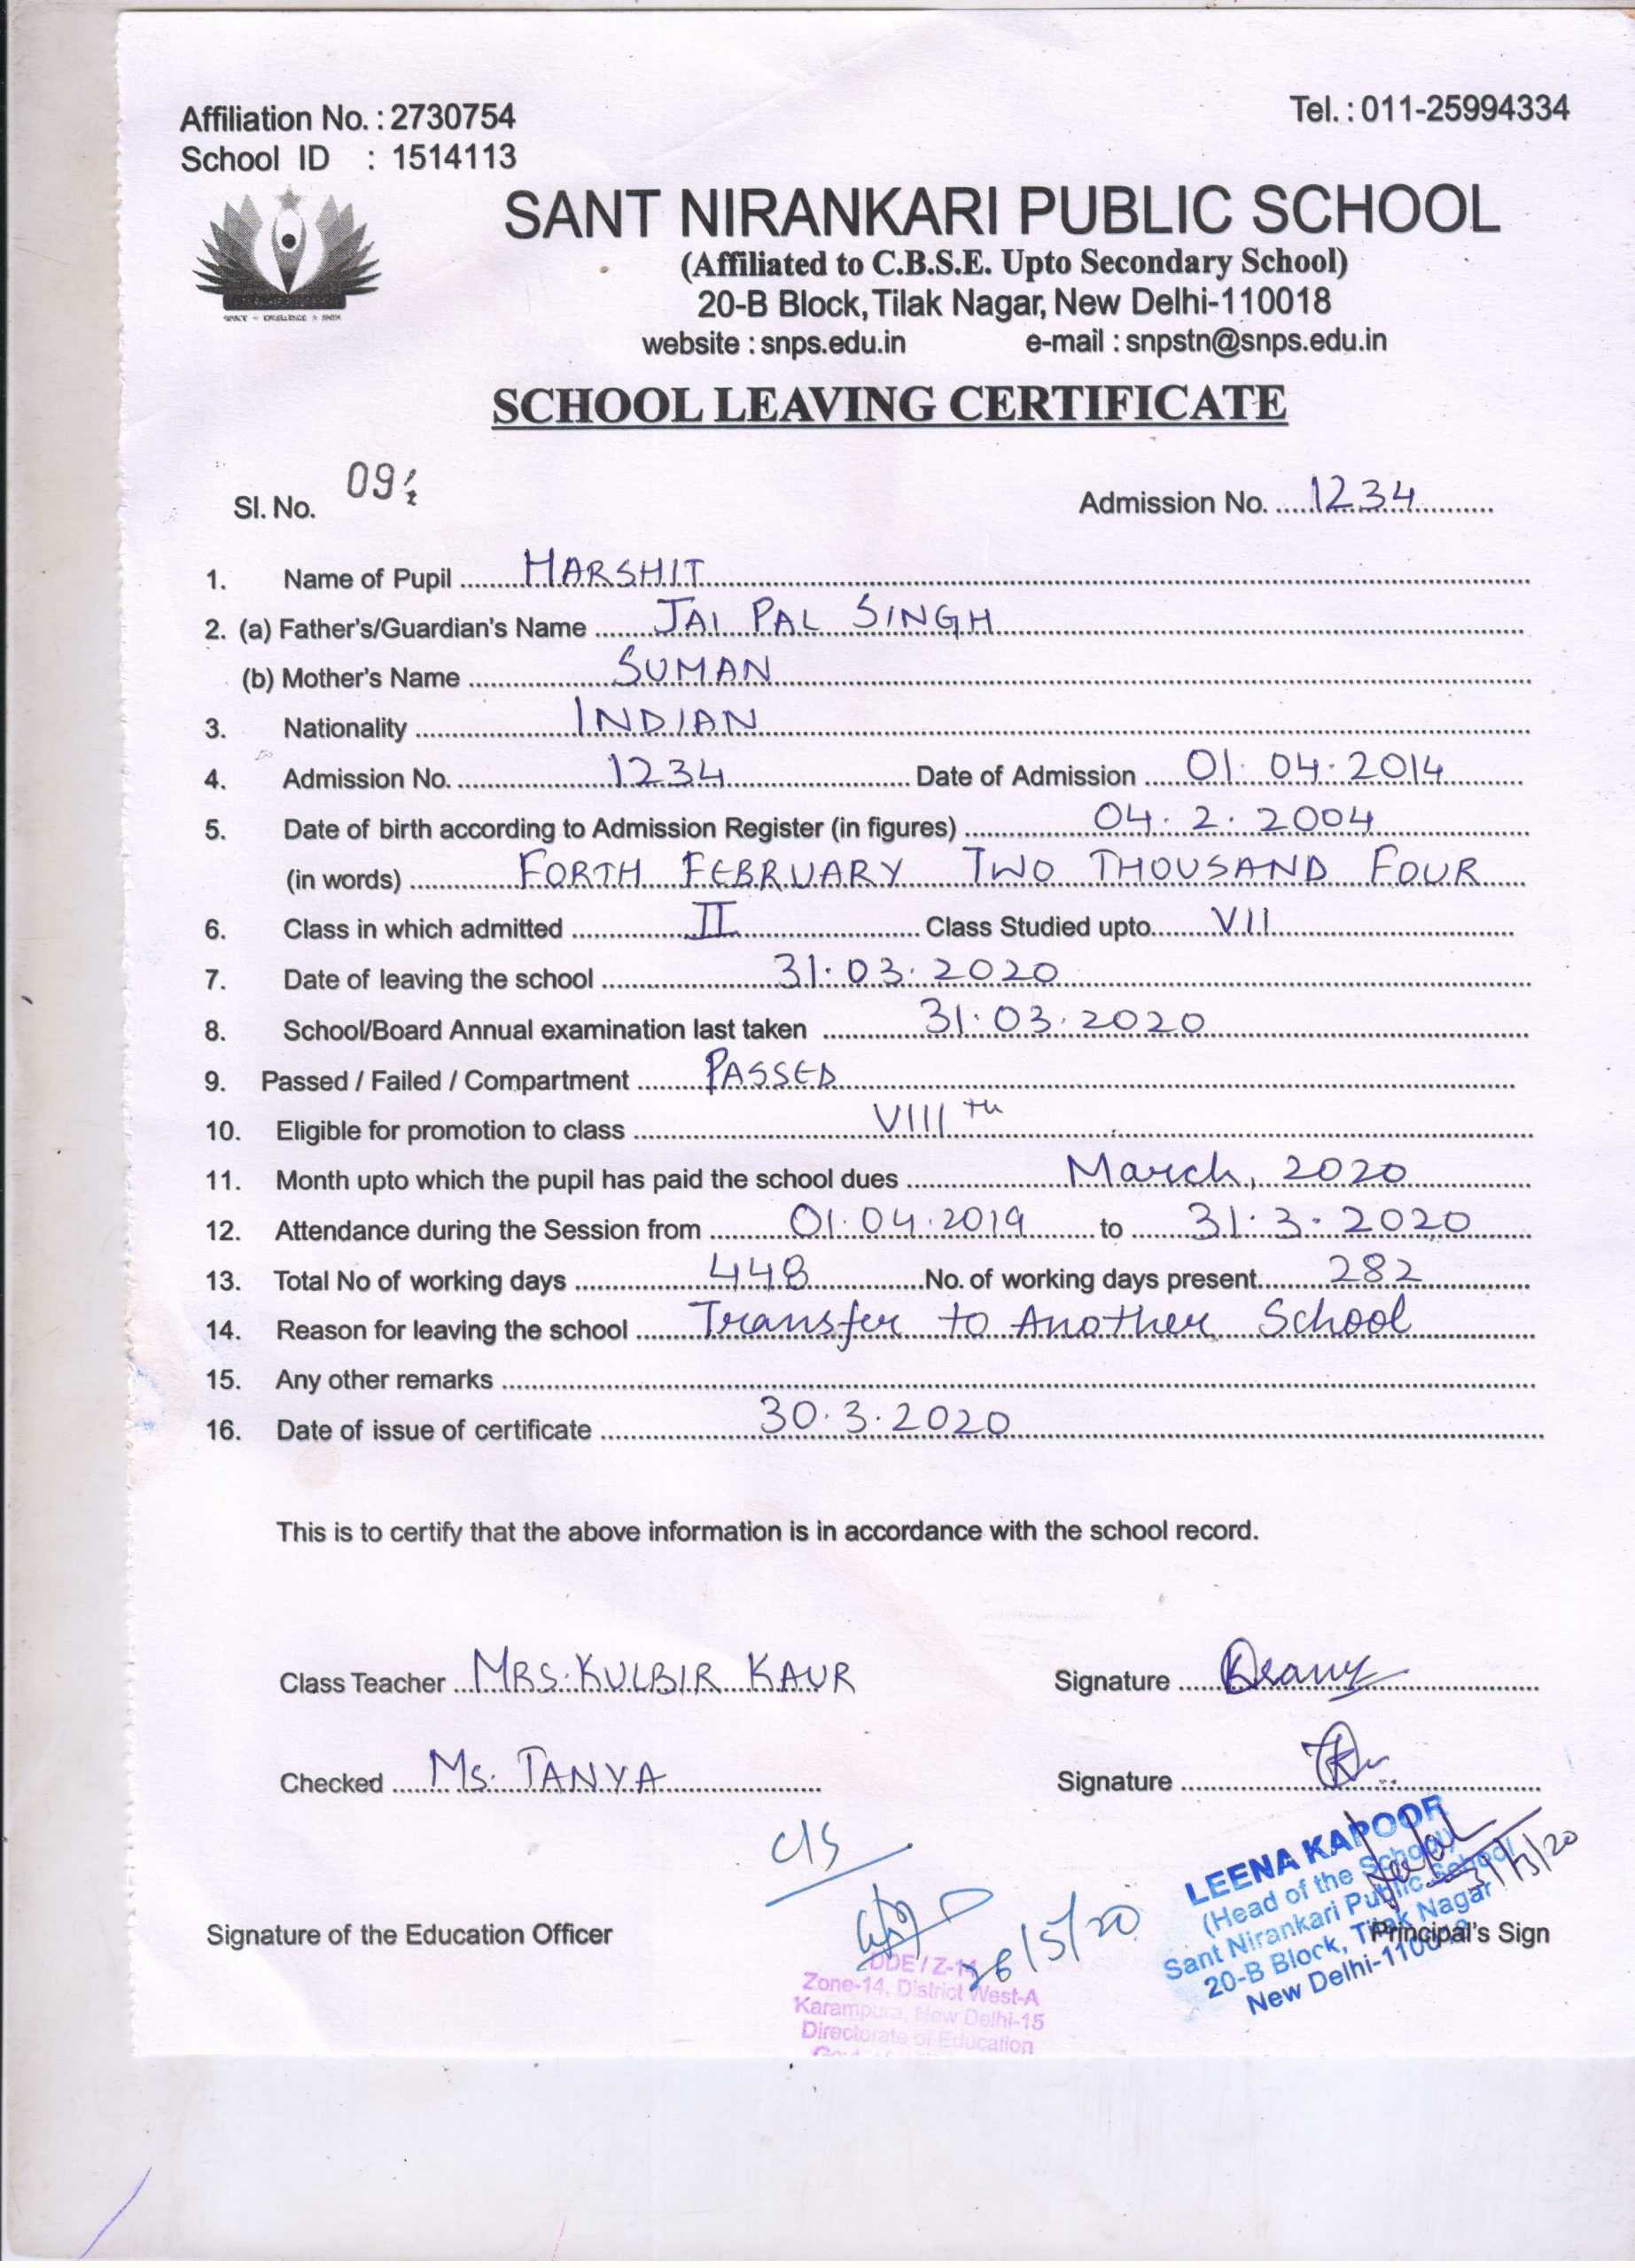 Affiliation No. : 2730754
Tel. : 011-25994334
School ID : 1514113
SANT NIRANKARI PUBLIC SCHOOL
(Affiliated to C.B.S.E. Upto Secondary School)
20-B Block, Tilak Nagar, New Delhi-110018
website : snps.edu.in e-mail : snpstn@snps.edu.in
SCHOOL LEAVING CERTIFICATE
Sl. No.
Admission No. 1234
1. Name of Pupil HARSHIT
2. (a) Father's/Guardian's Name JAI PAL SINGH
(b) Mother's Name SUMAN
3. Nationality INDIAN
4. Admission No. 1234 Date of Admission 01.04.2014
5. Date of birth according to Admission Register (in figures) 04.2.2004
(in words) FORTH FEBRUARY TWO THOUSAND FOUR
6. Class in which admitted II Class Studied upto VII
7. Date of leaving the school 31.03.2020
8. School/Board Annual examination last taken 31.03.2020
9. Passed / Failed / Compartment PASSED
10. Eligible for promotion to class VIII TH
11. Month upto which the pupil has paid the school dues March, 2020
12. Attendance during the Session from 01.04.2019 to 31.3.2020
13. Total No of working days 448 No. of working days present 282
14. Reason for leaving the school Transfer to Another School
15. Any other remarks
16. Date of issue of certificate 30.3.2020
This is to certify that the above information is in accordance with the school record.
Class Teacher MRS. KULBIR KAUR Signature
Checked Ms. TANYA Signature
C/S
26/5/20
Signature of the Education Officer
DDE / Z-14
Zone-14, District West-A
Karampura, New Delhi-15
Directorate of Education
LEENA KAPOOR
(Head of the School)
Sant Nirankari Public School
20-B Block, Tilak Nagar
New Delhi-110018
Principal's Sign